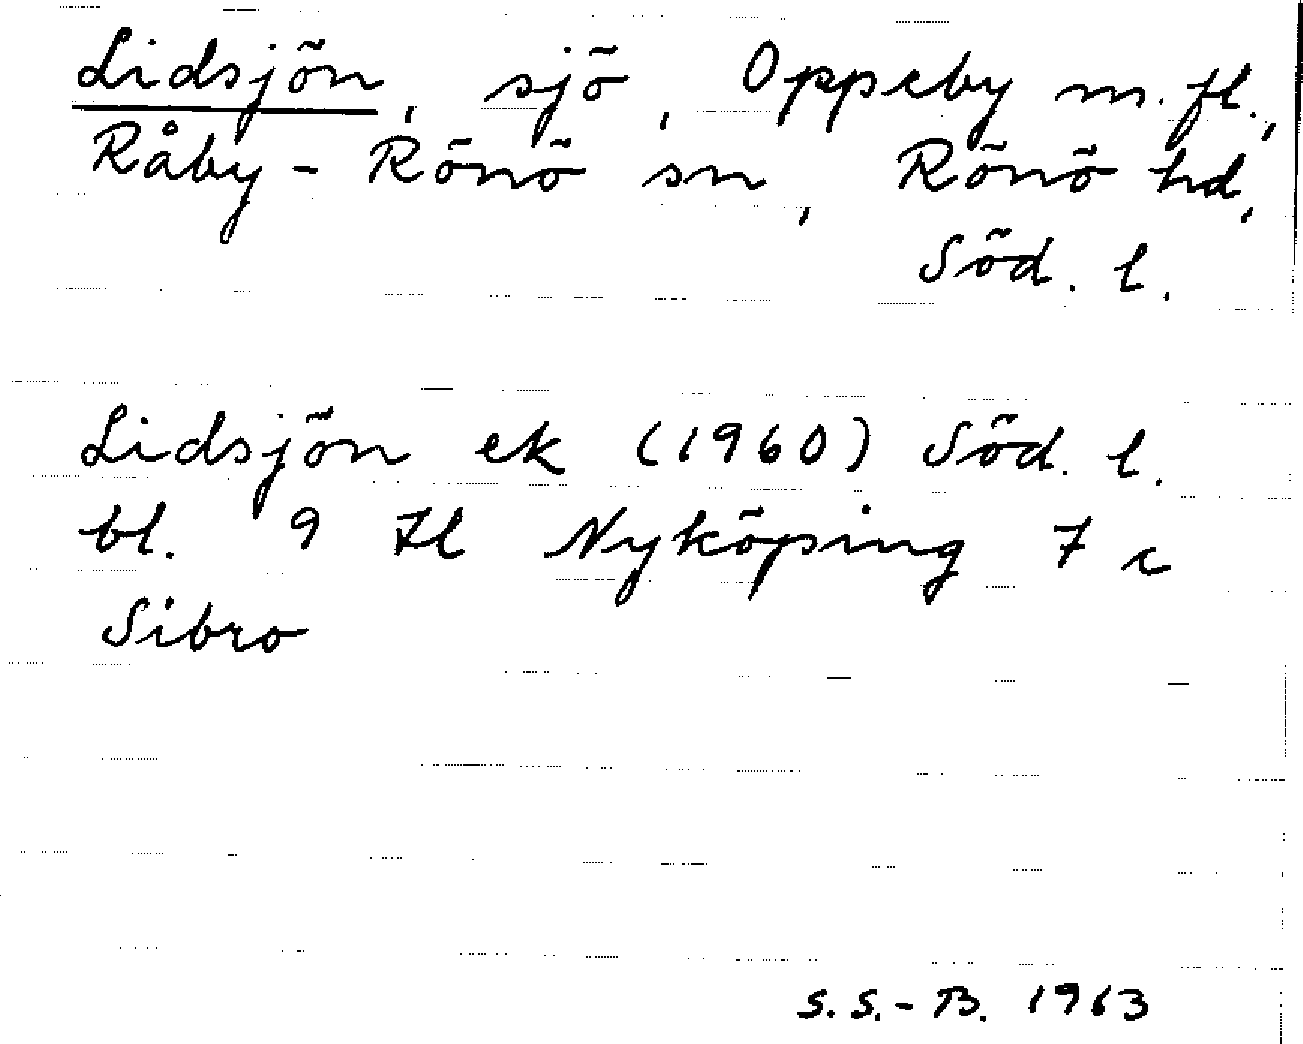 Lidsjön, sjö, Oppeby m. fl.,
Råby-Rönö sn, Rönö hd,
Söd. l.
Lidsjön ek (1960) Söd. l.
bl. 9 H Nyköping 7 c
Sibro
S.S.-B. 1963